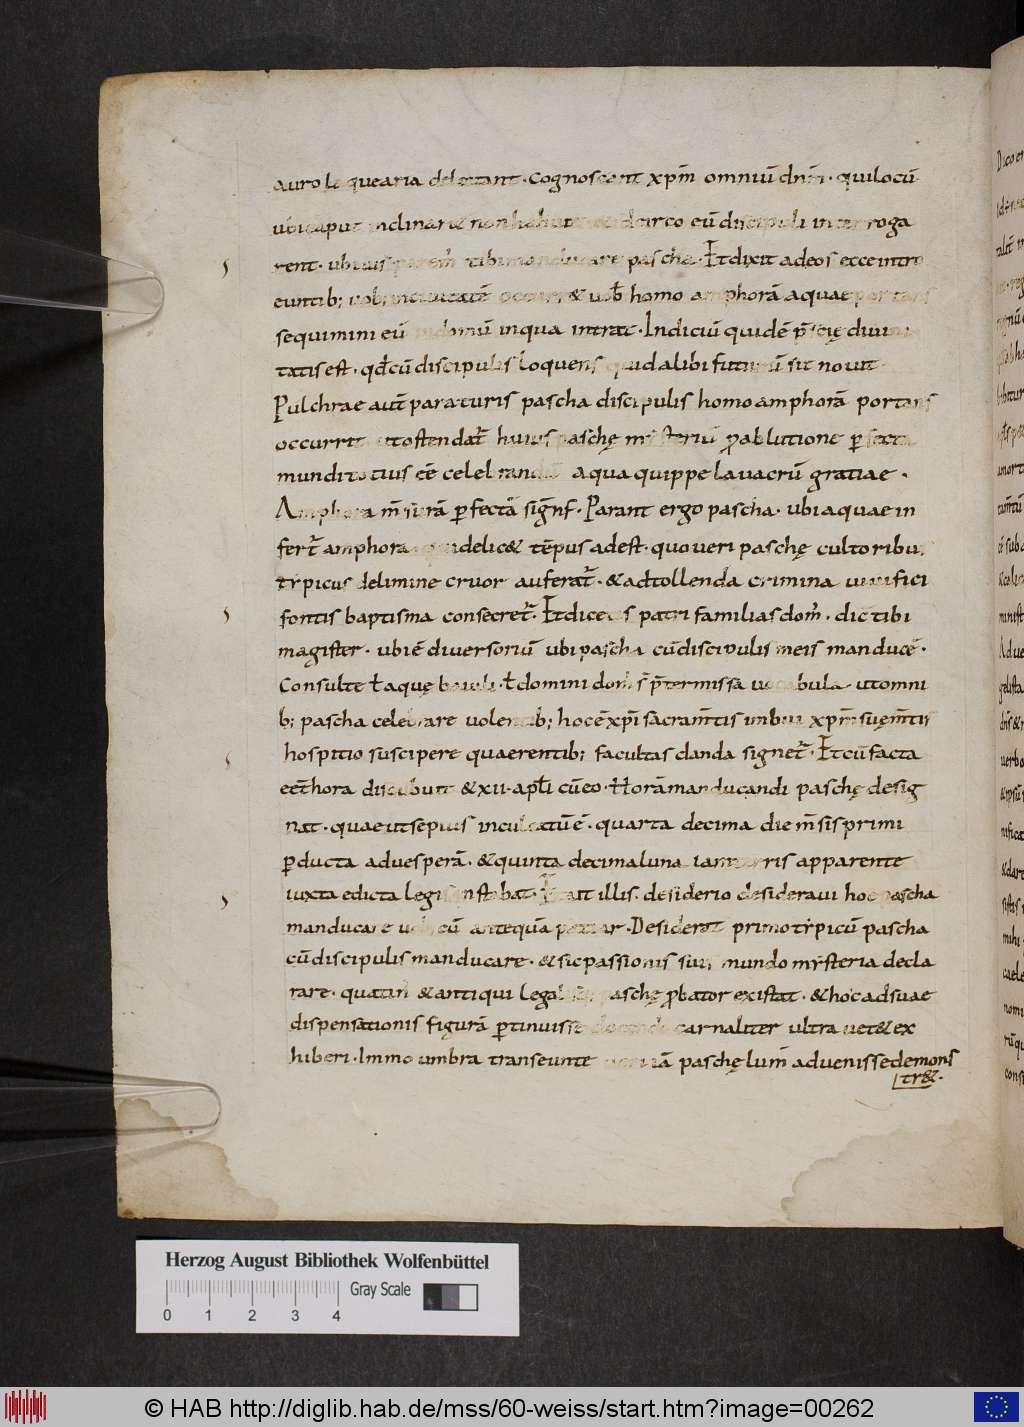 auro laquearia delectant · Cognoscant xp̄m omniū dn̄m · qui locū
ubi caput inclinar& non habuit idcirco eū discipuli interroga
rent · ubi uis tibi manducare pascha · Et dixit ad eos ecce intro
euntib; uob; in ciuitatē occurr& uob̄ homo amphorā aquae portans
sequimini eū in domū in qua intrat · Indiciū quidē p̄scię diuini
tatis est · qđ cū discipulis loquens quid alibi futurū sit nouit
Pulchrae aut̄ paraturis pascha discipulis homo amphorā portans
occurrit ut ostendat̄ huius paschę mysteriū ꝓ ablutione perfecta
mundi totius eē celebrandū aqua quippe lauacrū gratiae ·
Amphora m̄surā perfectā sign̄f · Parant ergo pascha · ubi aquae in
fert̄ amphora uidelic& tēpus adest · quo ueri paschę cultorib;
typicus de limine cruor auferat̄ · & ad tollenda crimina uiuifici
fontis baptisma consecret̄ · Et dicetis patri familias dom̄ · dic tibi
magister · ubi ē diuersoriū ubi pascha cū discipulis meis manducē ·
Consulte ł aquę baiuli · ł domini dom̄ p̄termissa uocabula · ut omni
b; pascha celebrare uolentib; hoc ē xp̄i sacram̄tis imbui xp̄m suę m̄tis
hospitio suscipere quaerentib; facultas danda signet̄ · Et cū facta
eēt hora discubuit & xii · apł̄i cū eo · Horā manducandi paschę desig
nat · quae ut sepius inculcatū ē · quarta decima die m̄sis primi
ꝑducta ad uesperā · & quinta decima luna iam terris apparente
iuxta edicta legis instabat · Et ait illis · desiderio desideraui hoc pascha
manducare uob cū antequā patiar · Desiderat primo typicū pascha
cū discipulis manducare · & sic passionis suę mundo mysteria decla
rare · quatin̄ & antiqui legalisq; paschę ꝓbator existat · & hoc ad suae
dispensationis figurā ꝑtinuisse docendo carnaliter ultra uet& ex
hiberi · Immo umbra transeunte ueri iā paschę lum̄ aduenisse demons
tr& ·
Herzog August Bibliothek Wolfenbüttel
Gray Scale
0 1 2 3 4
© HAB http://diglib.hab.de/mss/60-weiss/start.htm?image=00262